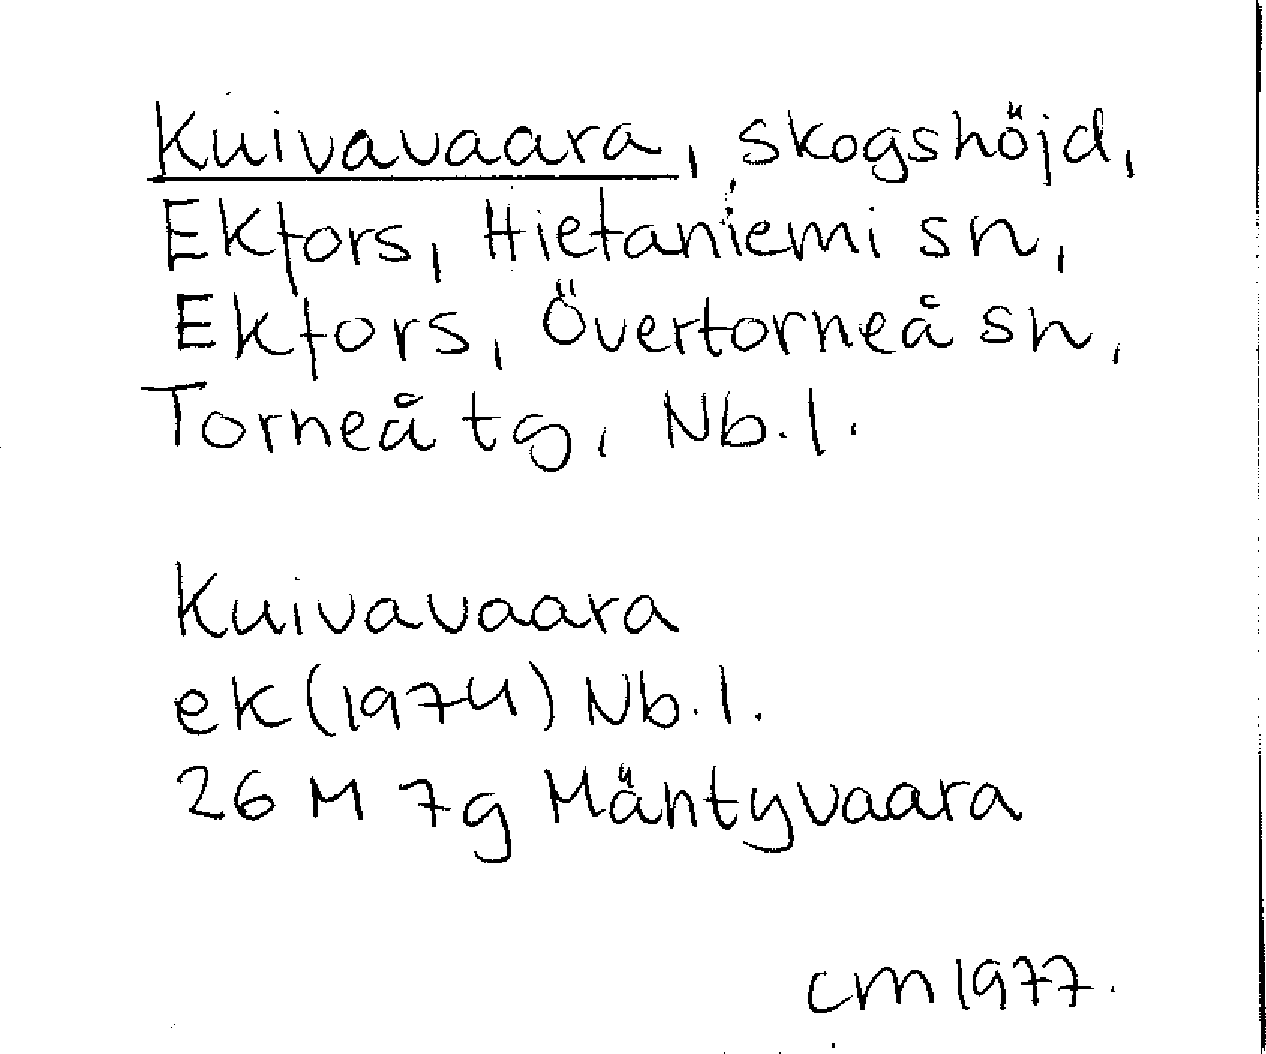 Kuivavaara, skogshöjd,
Ekfors, Hietaniemi sn,
Ekfors, Övertorneå sn,
Torneå tg, Nb.l.
Kuivavaara
ek (1974) Nb.l.
26 M 7g Mäntyvaara
CM 1977.